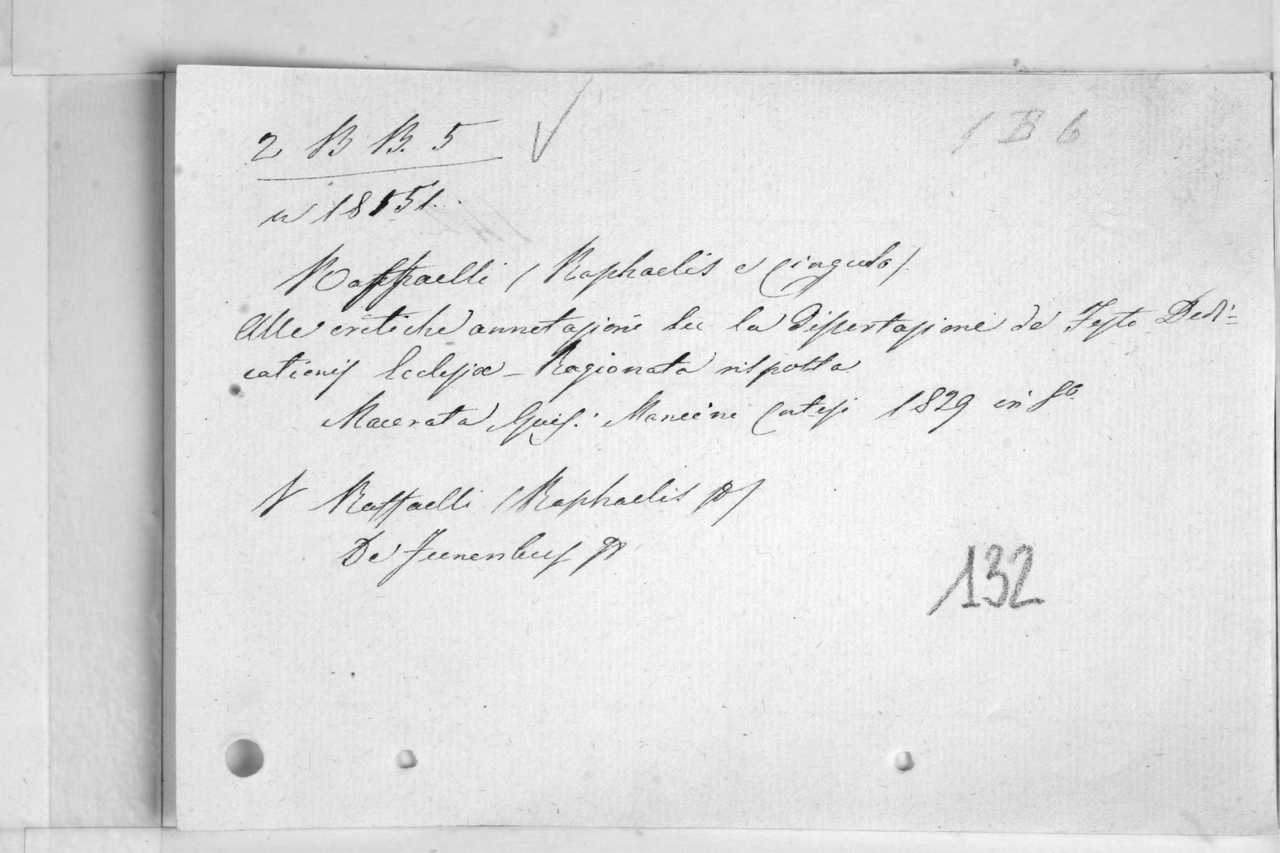 2 B B. 5
1 B 6
n 18551.
Raffaelli (Raphaelis e Cingulo)
Alle critiche annotazioni la dissertazione de Festo Dedi=
cationis Ecclesiæ - Ragionata risposta
Macerata Mancini Cortesi 1829 in 8o
V Raffaelli (Raphaelis
De
132